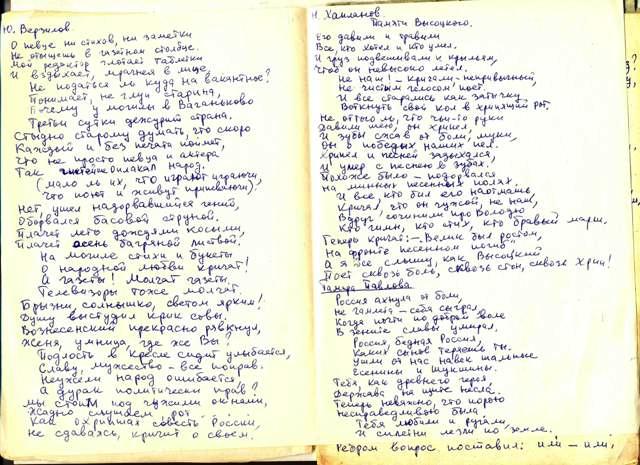 Ю. Верзилов
О певце ни стихов, ни заметки
Не отыщешь в газетном столбце.
Мой редактор глотает таблетки
И вздыхает, мрачнея в лице.
Не податься ль куда на вакантное?
Понимает, не глуп старина,
Почему у могилы в Ваганьково
Третьи сутки дежурит страна.
Стыдно старому думать, что скоро
Каждый и без печати поймёт,
Что не просто певца и актёра
Так оплакал народ.
(мало ль их, что играют играючи,
что поют и живут припеваючи)
Нет, ушел надорвавшийся гений,
Оборвался басовой струной.
Плачет лето дождями косыми,
Плачет осень багряной листвой.
На могиле стихи и букеты
О народной любви кричат!
А газеты! Молчат газеты
Телевизоры тоже молчат.
Брызни, солнышко, светом ярким!
Душу выстудил крик совы.
Вознесенский прекрасно рявкнул,
Женя, умница, где же Вы?
Подлость в кресле сидит улыбается,
Славу, мужество – все поправ.
Неужели народ ошибается,
А дурак политически прав?
Мы стоим под чужими окнами,
Жадно слушаем, рот
Как охрипшая совесть России,
Не сдаваясь, кричит о своём.
Н. Хайланов.
Памяти Высоцкого.
Его давили и травили
Все, кто хотел и кто умел.
И груз подвешивали к крыльям,
Чтоб он невысоко летел.
Не наш! – кричали – непривычный,
Не чистым голосом поет.
И все старались как затычку
Воткнуть свой кол в хрипящий рот.
Не от того ль, что чьи-то руки
Давили шею, он хрипел,
И зубы сжав от боли, муки,
Он о победах наших пел.
Хрипел и песней задыхался,
И умер с песнею в зубах.
Похоже было – подорвался
На минных песенных полях.
И все, кто бил его наотмашь,
Кричал, что он чужой, не наш,
Вдруг сочинили про Володю
Кто гимн, кто стих, кто бравый марш.
Теперь кричат: – Велик был ростом,
На фронте песенном погиб
А я все слышу, как Высоцкий
Поет сквозь боль, сквозь стон, сквозь хрип!
Тамара Павлова
Россия ахнула от боли,
Не Гамлета – себя сыграл,
Когда почти по доброй воле
В зените славы умирал.
Россия, бедная Россия,
Каких сынов теряешь ты.
Ушли от нас навек шальные
Есенины и Шукшины.
Тебя, как древнего героя
Держава на щите несла.
Теперь неважно, что порою
Несправедливою была
Тебя любили и ругали,
И сплетни лезли по земле.
Ребром вопрос поставил: или – или,